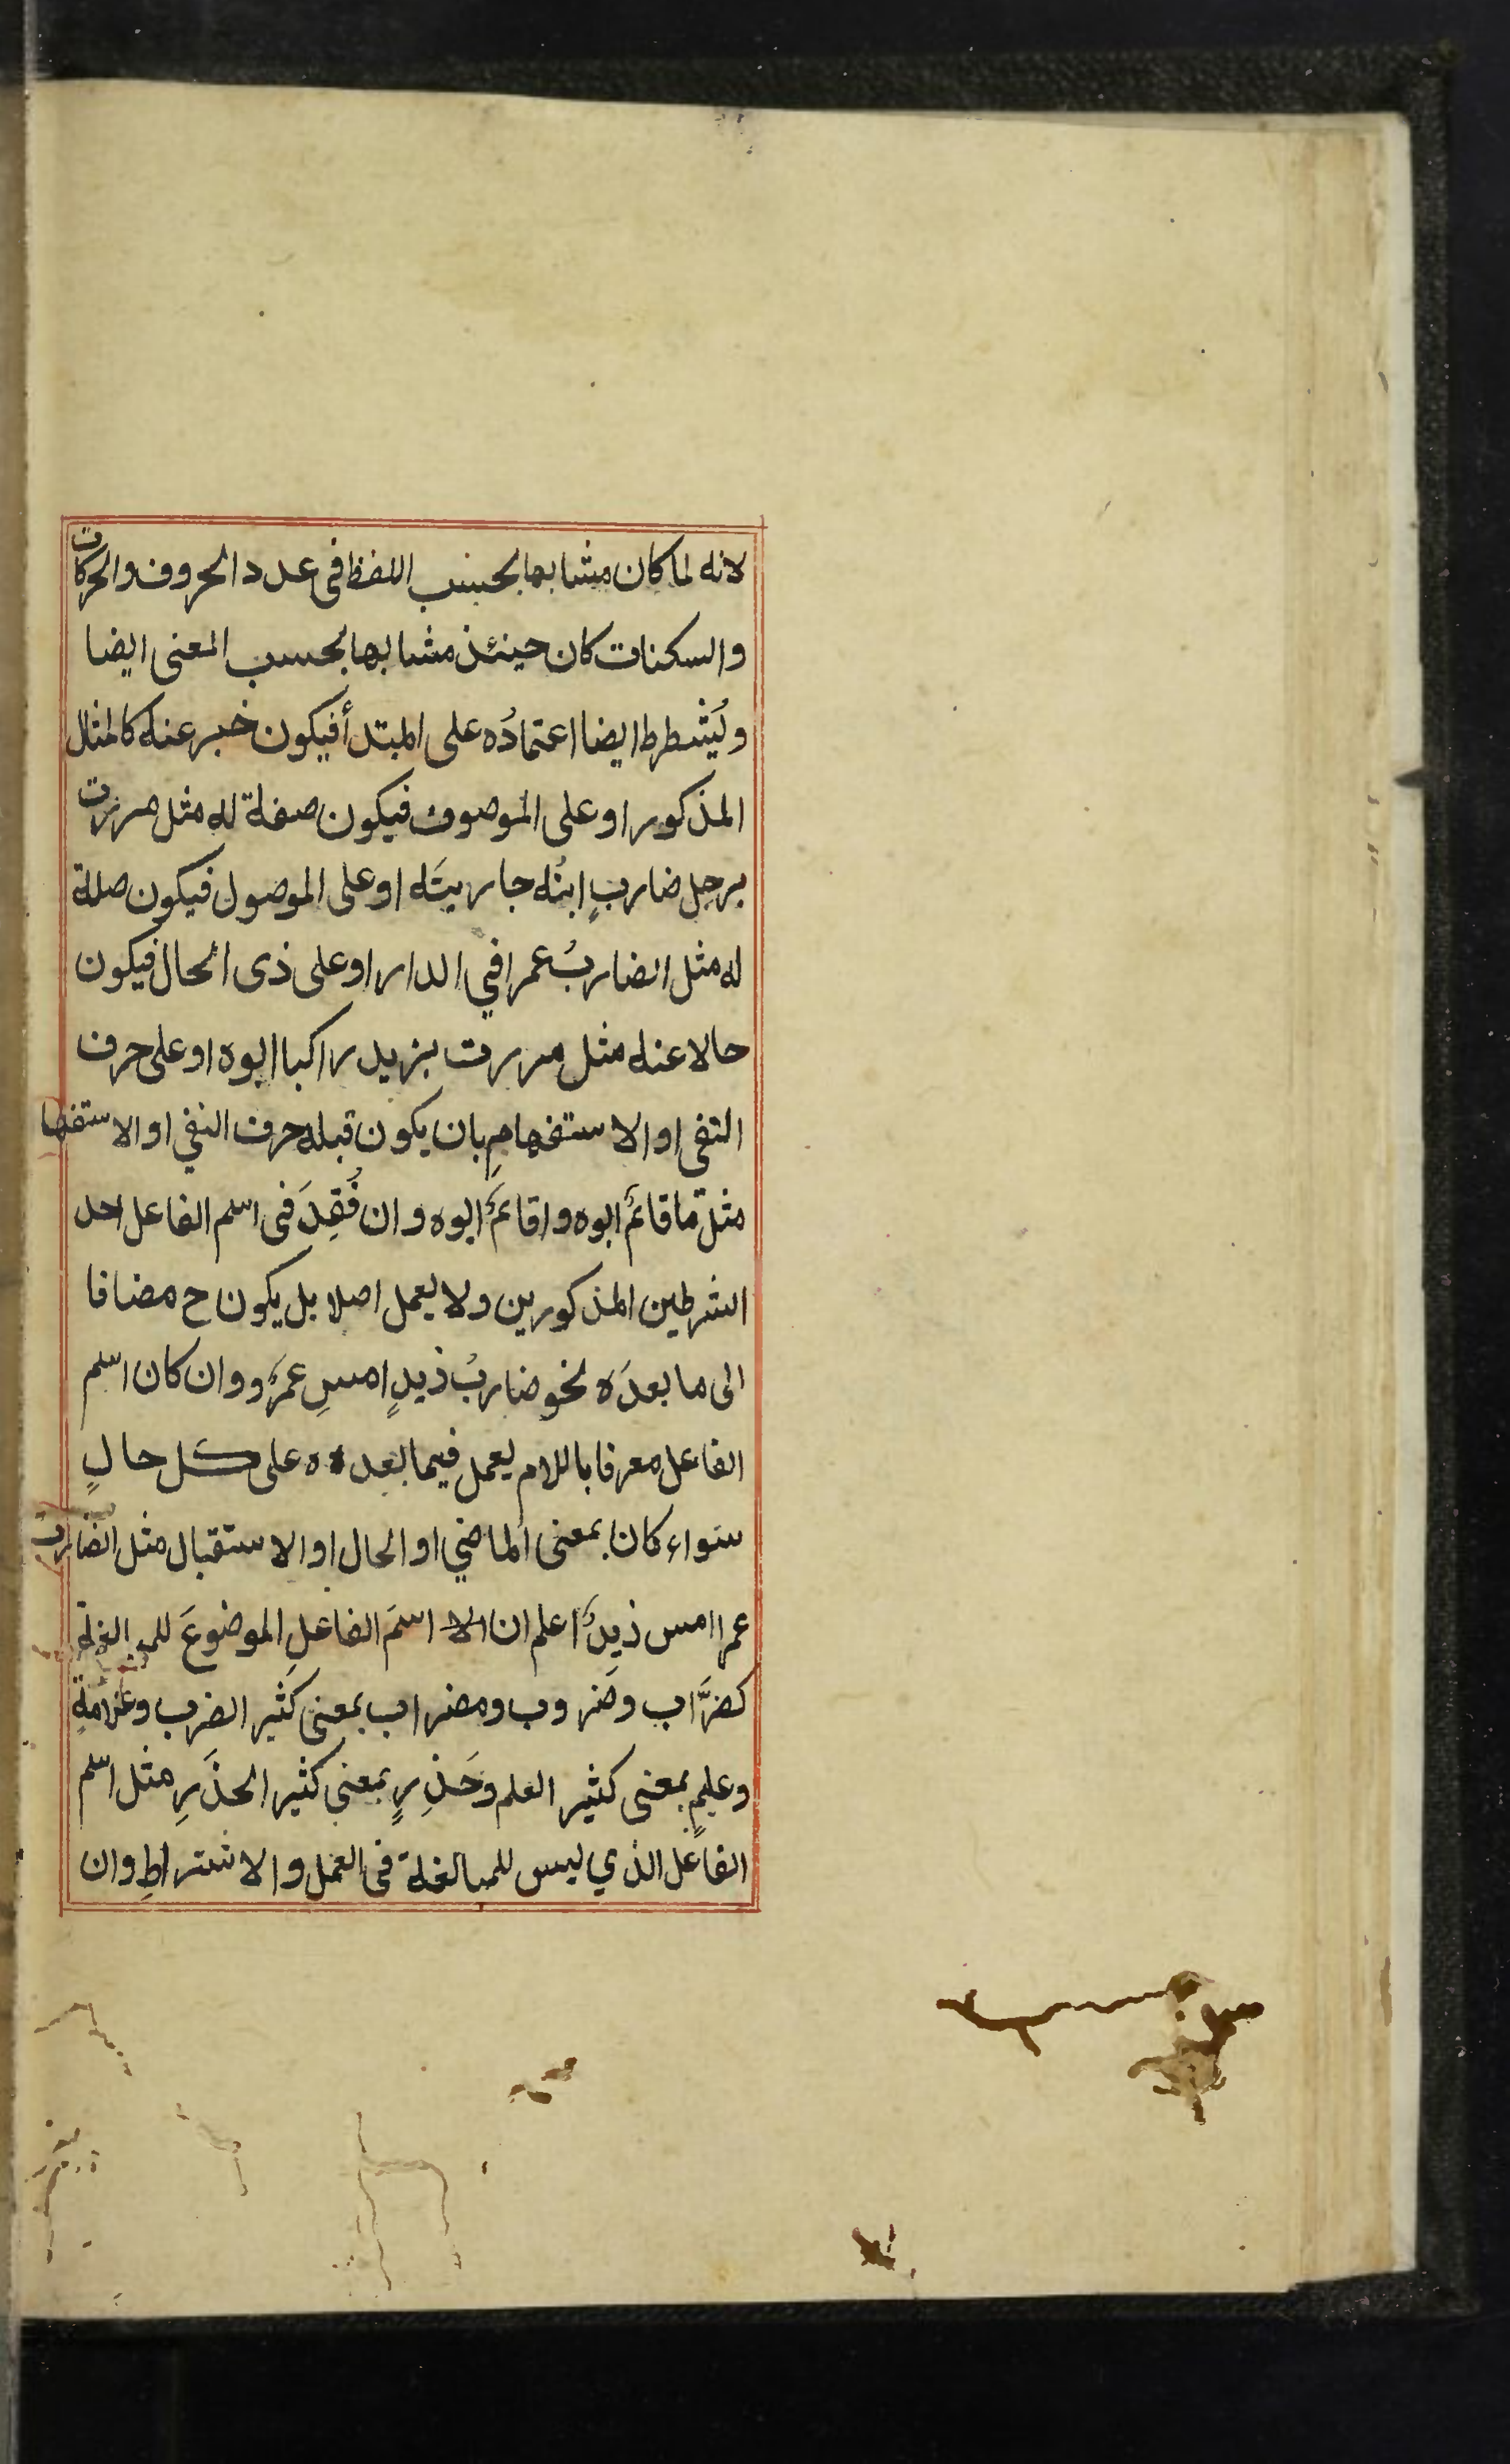 لانه لما كان مشابها بحسب اللفظ فى عدد الحروف والحركات
والسكنات كان حينئذ مشابها بحسب المعنى ايضا
ويُشطرط ايضا اعتمادُه على المبتدأ فيكون خبر عنه كالمثال
المذكور او على الموصوف فيكون صفة له مثل مررت
برجل ضاربٍ ابنُه جاريتَه او على الموصول فيكون صلة
له مثل الضاربُ عمرا في الدار او على ذى الحال فيكون
حالا عنه مثل مررت بزيد راكبا ابوه او على حرف
النفى او الاستفهامِ بان يكون قبله حرف النفي او الاستفها
مثل ما قائمٌ ابوه واقائمٌ ابوه وان فُقِدَ فى اسم الفاعل احد
الشرطين المذكورين ولا يعمل اصلا بل يكون ح مضافا
الى ما بعدَه نحو ضاربُ ذيدٍ امسِ عمرٌو وان كان اسم
الفاعل معرفا باللام يعمل فيما بعده على كل حالٍ
سواء كان بمعنى الماضي او الحال او الاستقبال مثل الضارب
عمرا امس ذيدٌ اعلم ان اسمَ الفاعلِ الموضوعَ للمبالغة
كضرَّاب وضَروب ومضراب بمعنى كثير الضرب وعلامةٍ
وعليمٍ بمعنى كثير العلم وحَذِرٍ بمعنى كثير الحذَرِ مثل اسم
الفاعل الذي ليس للمبالغة فى العمل والاشتراطِ وان